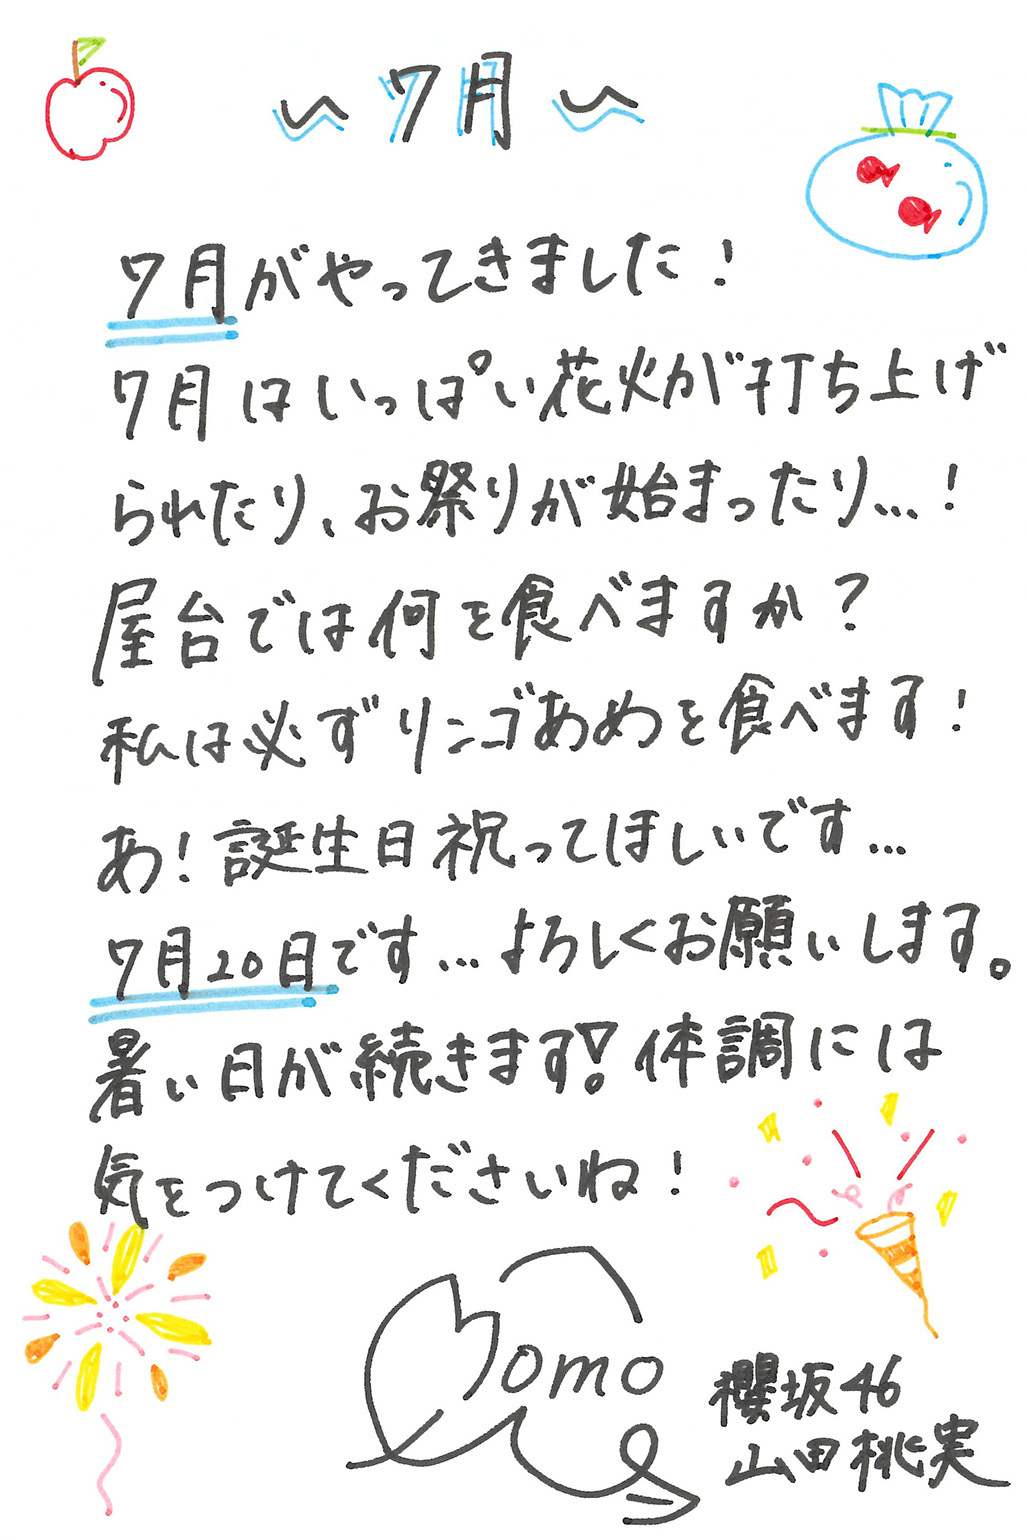 〜7月〜
7月がやってきました！
7月はいっぱい花火が打ち上げ
られたり、お祭りが始まったり…！
屋台では何を食べますか？
私は必ずリンゴあめを食べます！
あ！誕生日祝ってほしいです…
7月20日です…よろしくお願いします。
暑い日が続きます！体調には
気をつけてくださいね！
Momo
櫻坂46
山田桃実